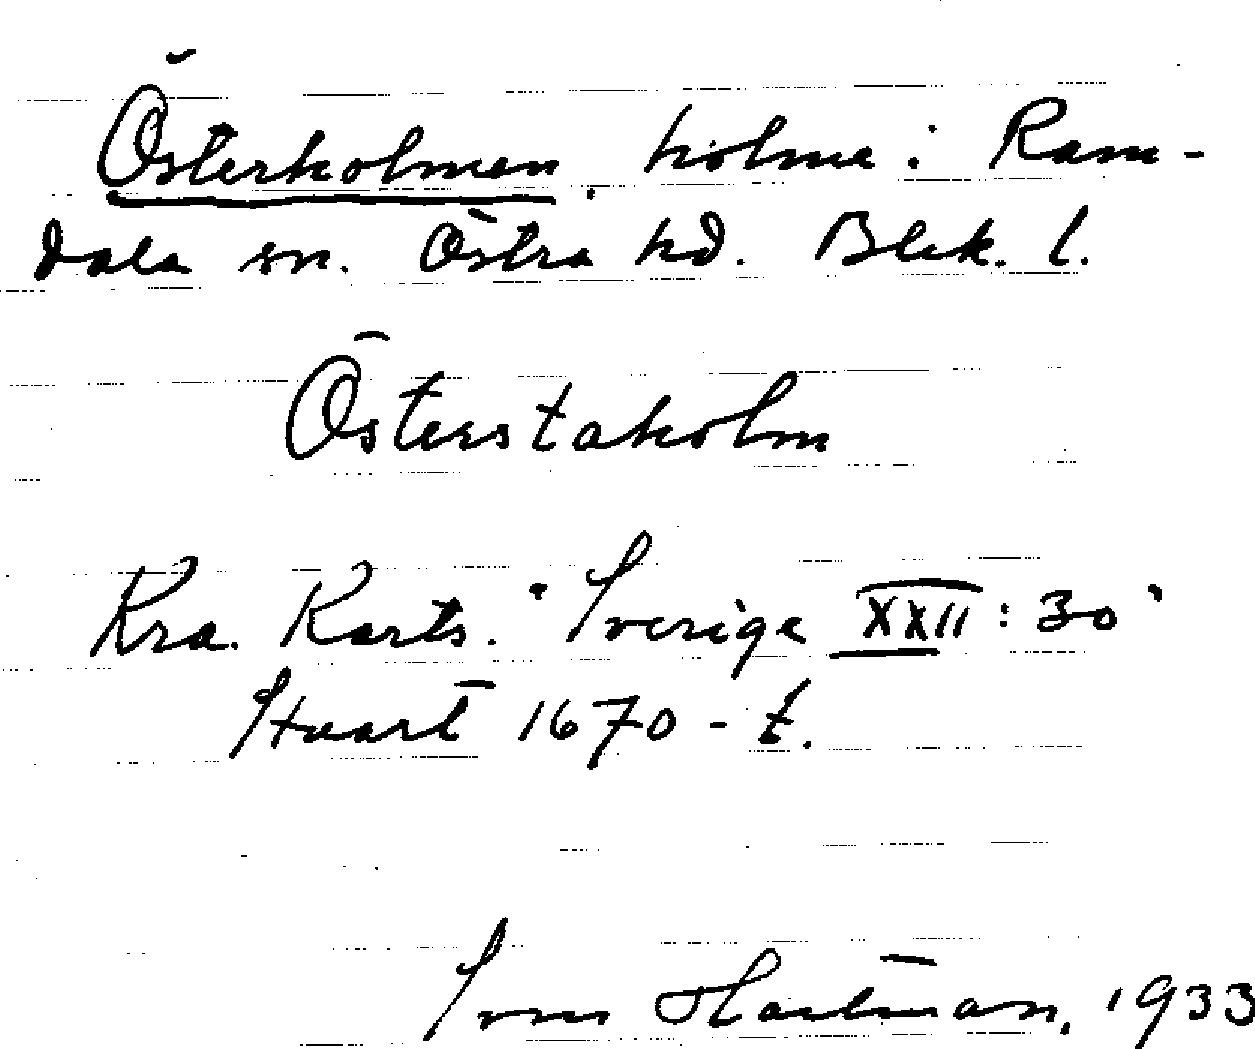 Österholmen, holme i Ram-
dala sn. Östra hd. Blek. l.
Österstaholm
Kra. Karts. "Sverige XXII: 30"
1670-t.
Sven Hartman, 1933